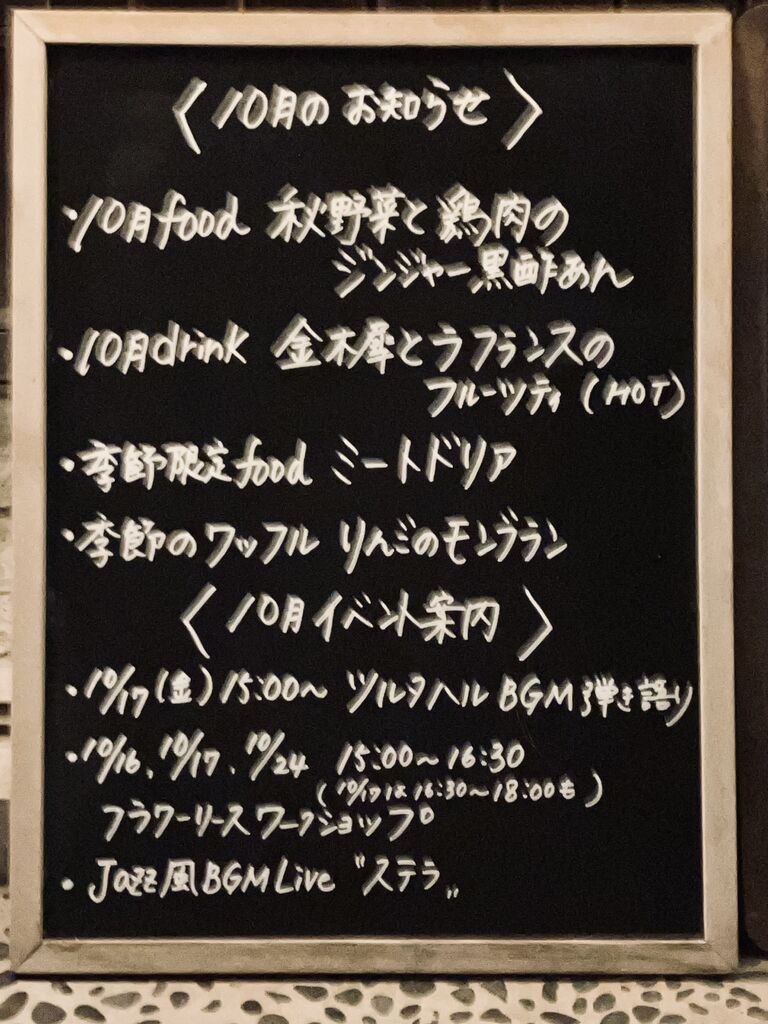 〈10月のお知らせ〉
・10月food 秋野菜と鶏肉の
ジンジャー黒酢あん
・10月drink 金木犀とラフランスの
フルーツティ (HOT)
・季節限定food ミートドリア
・季節のワッフル りんごのモンブラン
〈10月イベント案内〉
・10/17(金)15:00〜 ツルタハル BGM弾き語り
・10/16、10/17、10/24 15:00〜16:30
(10/17は16:30〜18:00も)
フラワーリースワークショップ
・Jazz風BGM Live "ステラ"